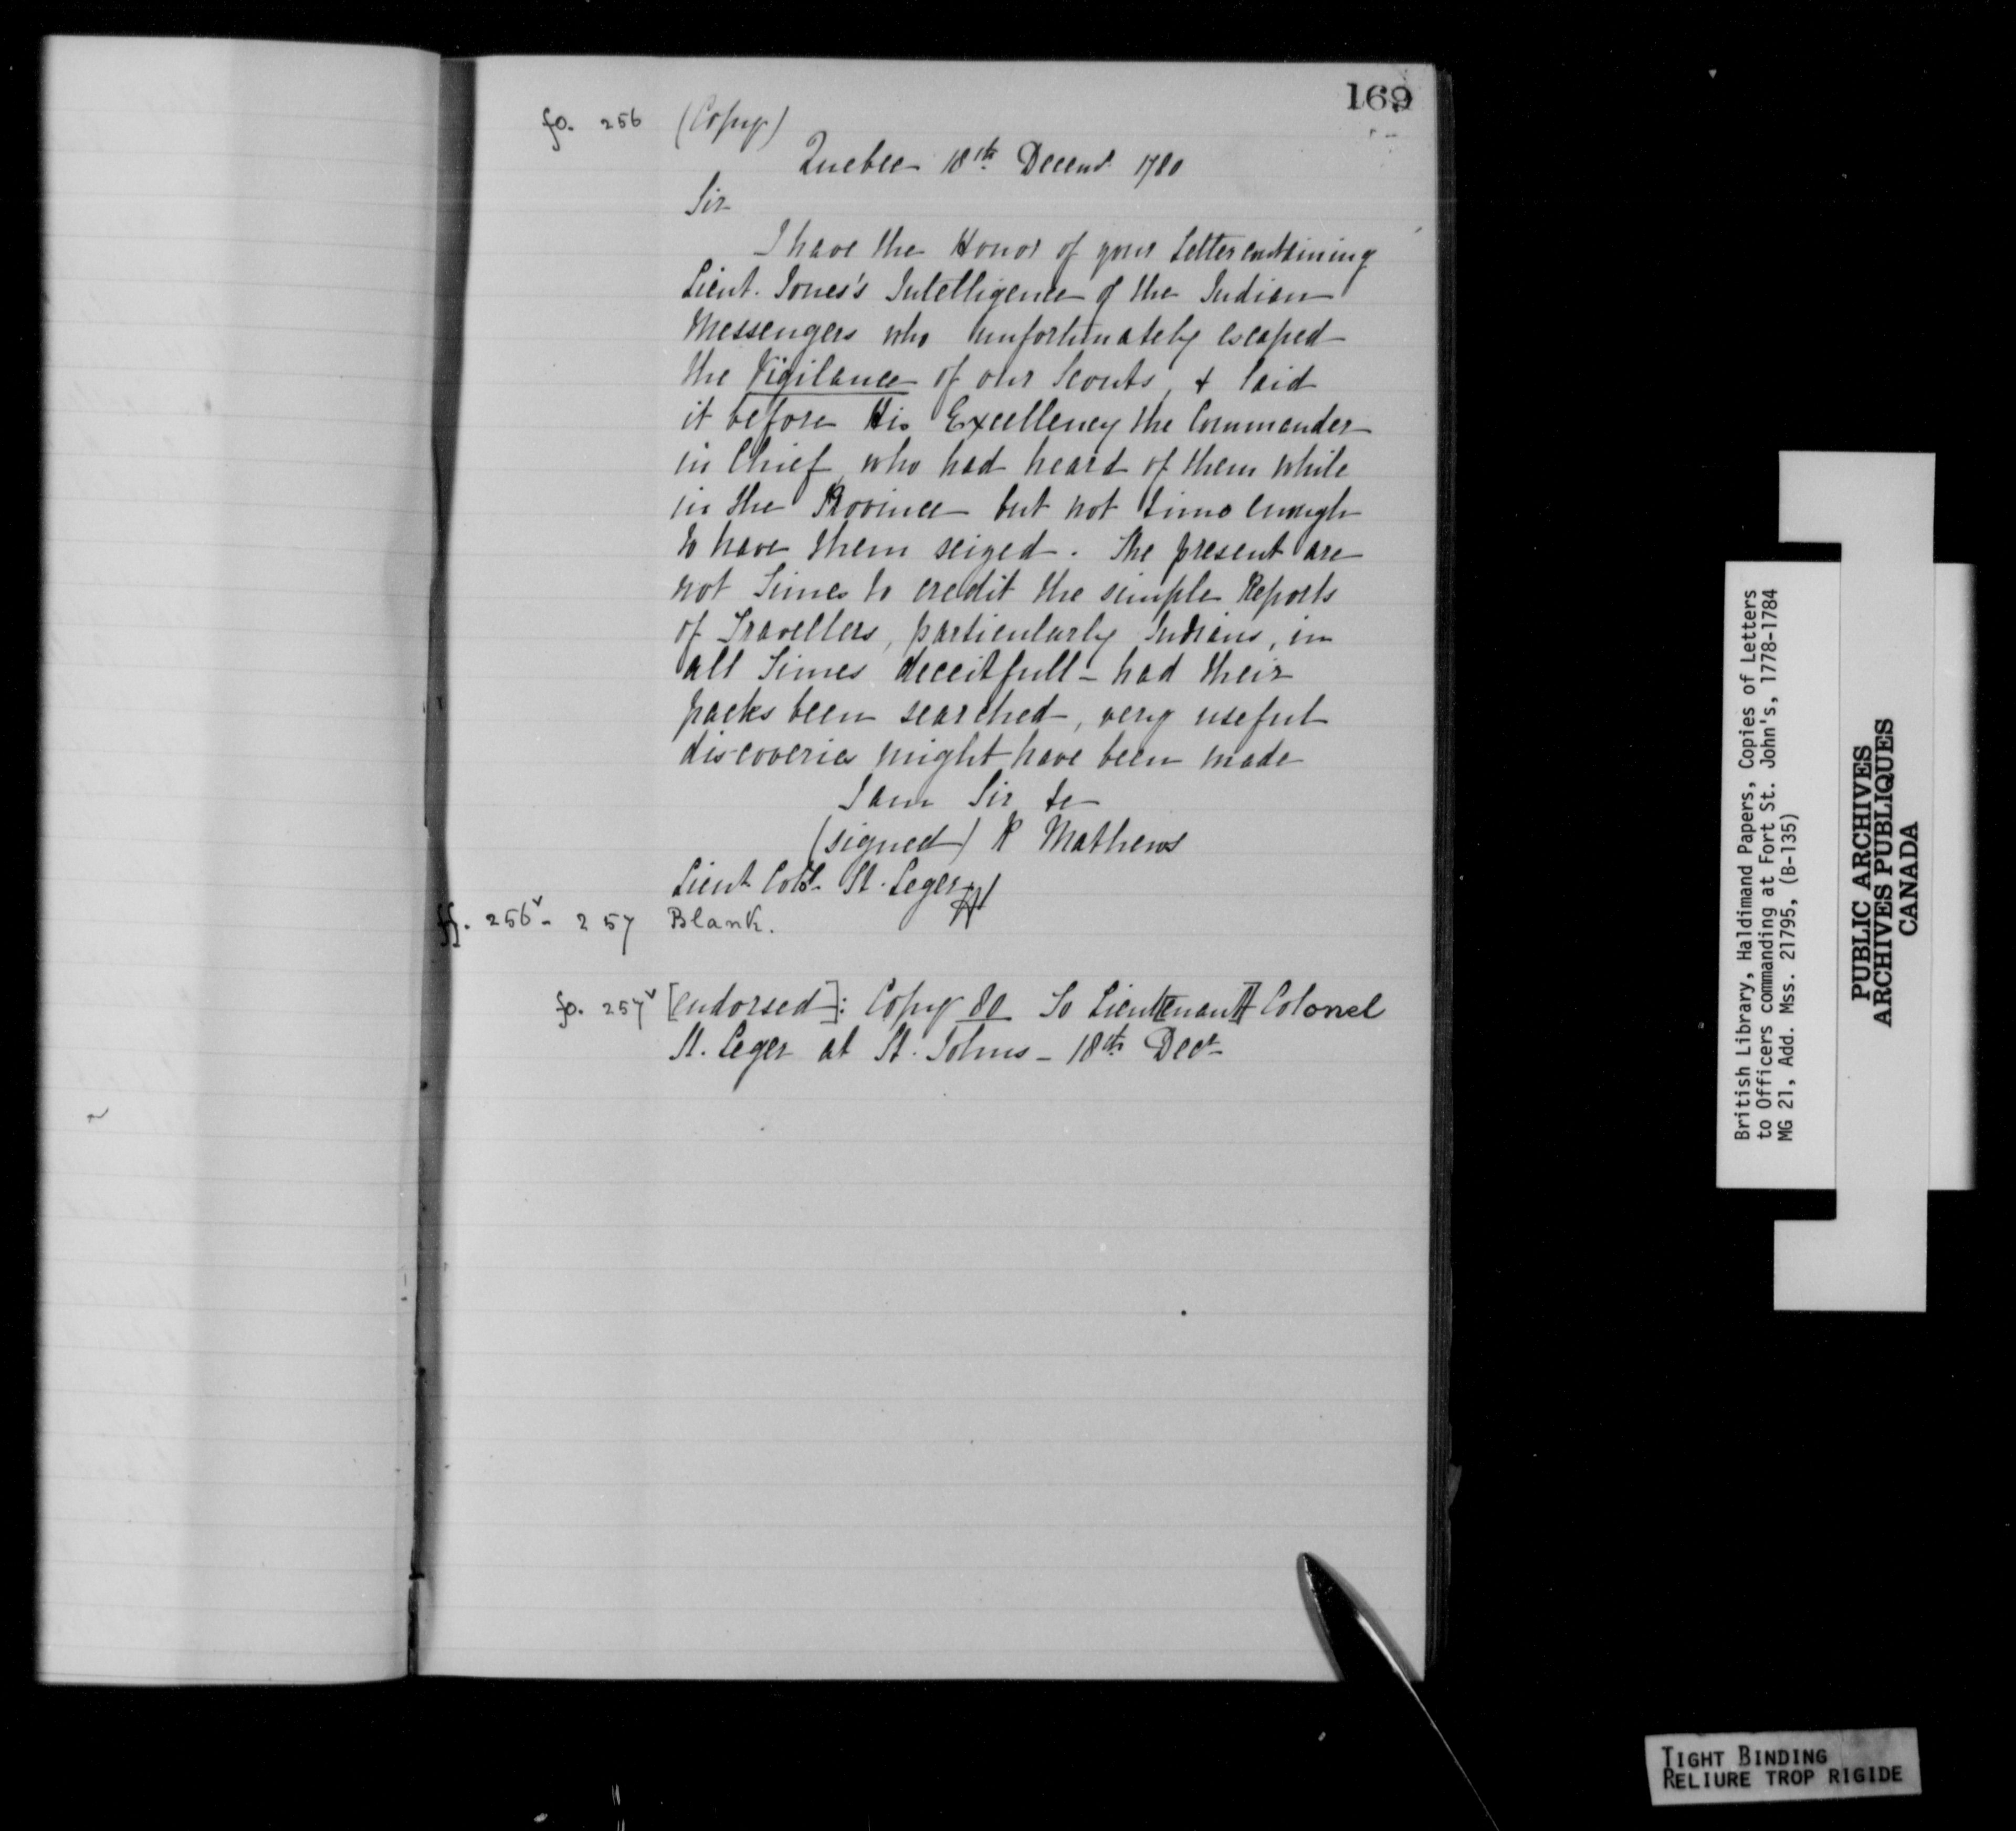 169
fo. 256 (Copy)
Quebec 18th Decemr 1780
Sir
I have the Honor of your Letter containing
Lieut. Jones's Intelligence of the Indian
Messengers who unfortunately escaped
the Vigilance of our Scouts, & laid
it before His Excellency the Commander
in Chief, who had heard of them while
in the Province but not time enough
to have them seized. The present are
not Times to credit the simple Reports
of Travellers, particularly Indians, in
all Times deceitfull – had their
packs been searched, very useful
discoveries might have been made
I am Sir &c
(signed) R Mathews
Lieut Coll. St. Leger
ff. 256v - 257 Blank.
fo. 257v [endorsed]: Copy 80 To Lieut[enant] Colonel
St. Leger at St. Johns – 18th Decr
British Library, Haldimand Papers, Copies of Letters
to Officers commanding at Fort St. John's, 1778-1784
MG 21, Add. Mss. 21795, (B-135)
PUBLIC ARCHIVES
ARCHIVES PUBLIQUES
CANADA
TIGHT BINDING
RELIURE TROP RIGIDE